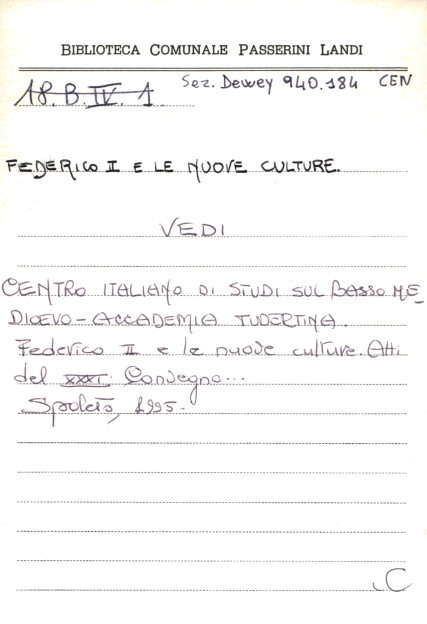 BIBLIOTECA COMUNALE PASSERINI LANDI
18.B.IV.1 Sez. Dewey 940.184 CEN
FEDERICO II E LE NUOVE CULTURE.
VEDI
CENTRO ITALIANO DI STUDI SUL BASSO ME_
DIOEVO - ACCADEMIA TUDERTINA.
Federico II e le nuove culture. Atti
del XXXI. Convegno...
Spoleto, 1995.
C